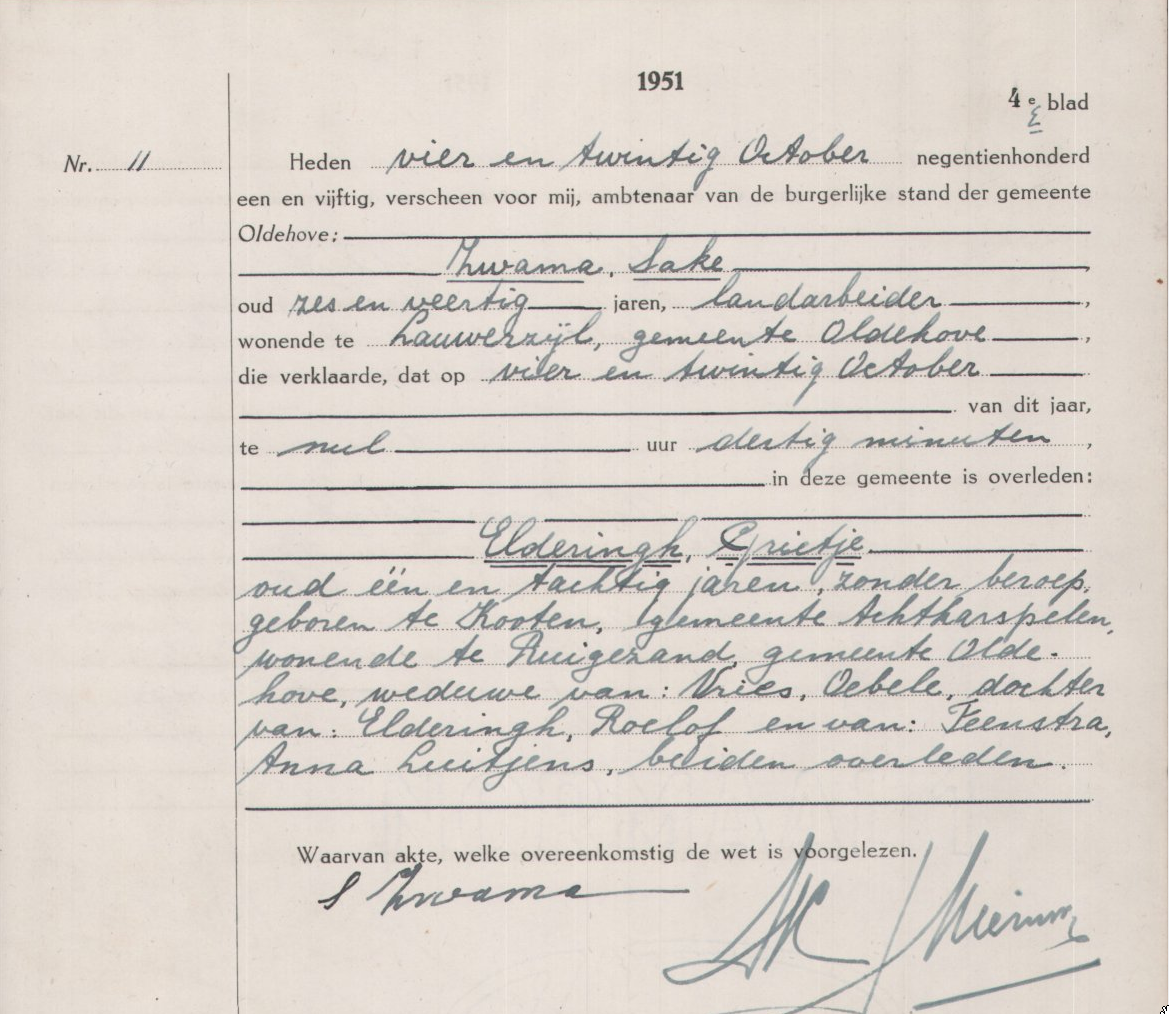 1951
4e blad
Nr. 11
Heden vier en twintig October negentienhonderd
een en vijftig, verscheen voor mij, ambtenaar van de burgerlijke stand der gemeente
Oldehove:
Zwama, Sake
oud zes en veertig jaren, landarbeider,
wonende te Lauwerzijl, gemeente Oldehove,
die verklaarde, dat op vier en twintig October
van dit jaar,
te nul uur dertig minuten,
in deze gemeente is overleden:
Elderingh, Grietje
oud één en tachtig jaren, zonder beroep,
geboren te Kooten, gemeente Achtkarspelen,
wonende te Ruigezand, gemeente Olde-
hove, weduwe van: Vries, Oebele, dochter
van: Elderingh, Roelof en van: Teenstra,
Anna Luitjens, beiden overleden.
Waarvan akte, welke overeenkomstig de wet is voorgelezen.
S Zwama